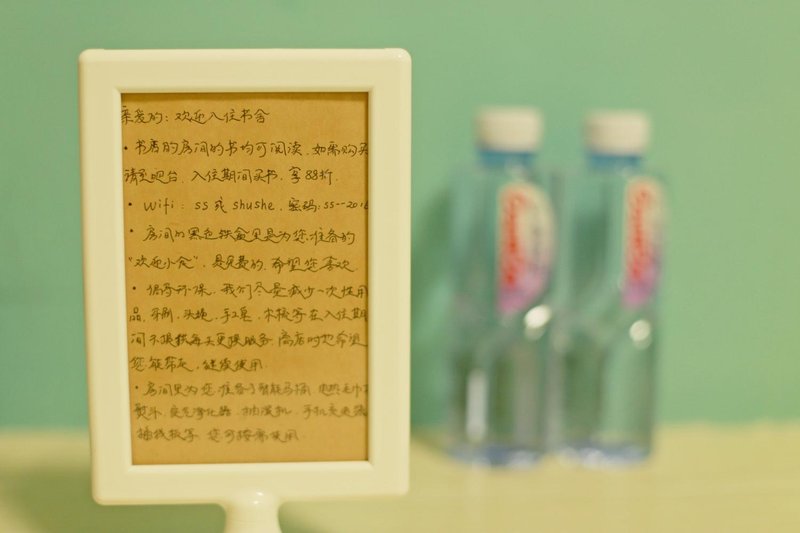 亲爱的：欢迎入住书舍
·书店的房间的书均可阅读，如需购买
请至吧台，入住期间买书，享88折．
·Wifi：ss或shushe，密码：ss--2016
·房间的黑色铁盒里是为您准备的
“欢迎小食”，是免费的，希望您喜欢．
·倡导环保，我们尽量减少一次性用
品，牙刷，头梳，手工皂，木梳等在入住期
间不提供每天更换服务．离店时也希望
您能带走，继续使用．
·房间里为您准备了智能马桶，电热毛巾
熨斗，空气净化器，抽湿机，手机充电器
插线板等．您可按需使用．